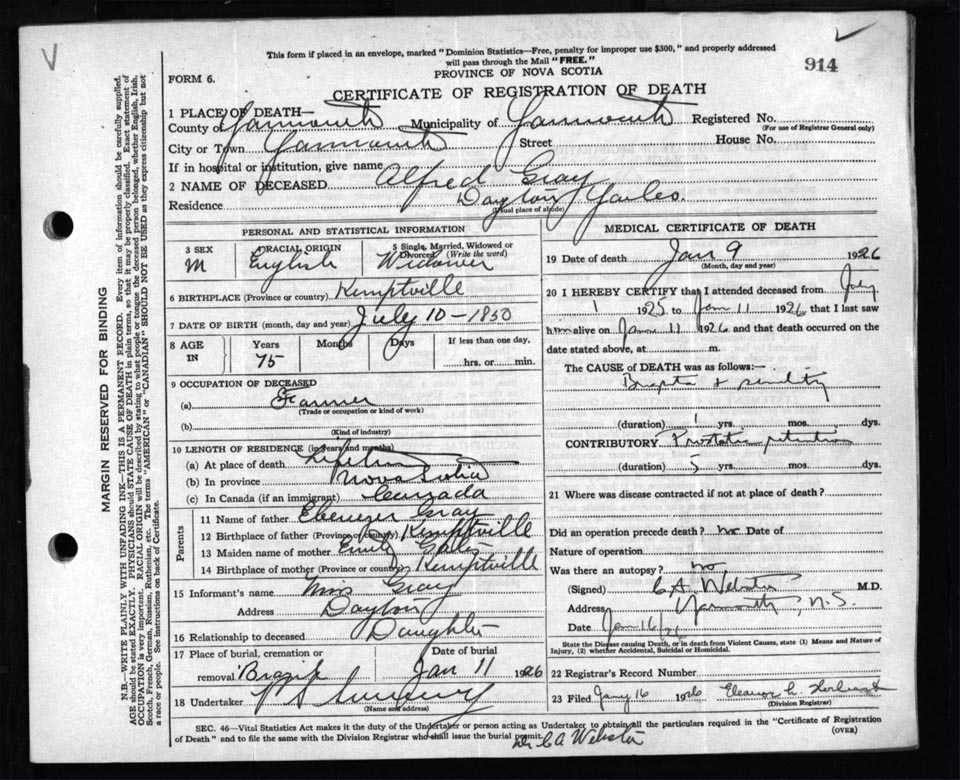 This form if placed in an envelope, marked "Dominion Statistics—Free, penalty for improper use $300," and properly addressed
will pass through the Mail "FREE."
914
FORM 6.
PROVINCE OF NOVA SCOTIA
CERTIFICATE OF REGISTRATION OF DEATH
1 PLACE OF DEATH—
County of Yarmouth Municipality of Yarmouth Registered No.
(For use of Registrar General only)
City or Town Yarmouth Street House No.
If in hospital or institution, give name
2 NAME OF DECEASED Alfred Gray
Residence Dayton
(Usual place of abode)
PERSONAL AND STATISTICAL INFORMATION
3 SEX M 4 RACIAL ORIGIN English 5 Single, Married, Widowed or Divorced (Write the word) Widower
6 BIRTHPLACE (Province or country) Kemptville
7 DATE OF BIRTH (month, day and year) July 10 - 1850
8 AGE IN Years 75 Months Days If less than one day, hrs. or min.
9 OCCUPATION OF DECEASED
(a) Farmer
(Trade or occupation or kind of work)
(b)
(Kind of industry)
10 LENGTH OF RESIDENCE (in years and months)
(a) At place of death Lifetime
(b) In province Nova Scotia
(c) In Canada (if an immigrant) Canada
Parents
11 Name of father Ebenezer Gray
12 Birthplace of father (Province or country) Kemptville
13 Maiden name of mother Emily
14 Birthplace of mother (Province or country) Kemptville
15 Informant's name Miss Gray
Address Dayton
16 Relationship to deceased Daughter
17 Place of burial, cremation or removal Brazil Date of burial Jan 11 1926
18 Undertaker Sweeny
(Name and address)
MEDICAL CERTIFICATE OF DEATH
19 Date of death Jan 9 1926
(Month, day and year)
20 I HEREBY CERTIFY that I attended deceased from July
1 1925 to Jan 11 1926 that I last saw
him alive on Jan 11 1926 and that death occurred on
date stated above, at m.
The CAUSE of DEATH was as follows:
& senility
(duration) 1 yrs. mos. dys.
CONTRIBUTORY Prostatic retention
(duration) 5 yrs. mos. dys.
21 Where was disease contracted if not at place of death?
Did an operation precede death? no Date of
Nature of operation
Was there an autopsy? no
(Signed) C A Webster M.D.
Address Yarmouth, N.S.
Date Jan 16/26
State the Disease causing Death, or in death from Violent Causes, state (1) Means and Nature of Injury, (2) whether Accidental, Suicidal or Homicidal.
22 Registrar's Record Number
23 Filed Jany 16 1926 Eleanor
(Division Registrar)
SEC. 46—Vital Statistics Act makes it the duty of the Undertaker or person acting as Undertaker to obtain all the particulars required in the "Certificate of Registration
of Death" and to file the same with the Division Registrar who shall issue the burial permit. (OVER)
Dr CA Webster
MARGIN RESERVED FOR BINDING
N.B.—WRITE PLAINLY WITH UNFADING INK—THIS IS A PERMANENT RECORD. Every item of information should be carefully supplied.
AGE should be stated EXACTLY. PHYSICIANS should STATE CAUSE OF DEATH in plain terms, so that it may be properly classified. Exact statement of
OCCUPATION is very important. RACIAL ORIGIN will be described by stating to what people or tongue the deceased person belonged, whether English, Irish,
Scotch, French, German, Russian, Ruthenian, etc. The terms "AMERICAN" or "CANADIAN" SHOULD NOT BE USED as they express citizenship but not
a race or people. See instructions on back of Certificate.